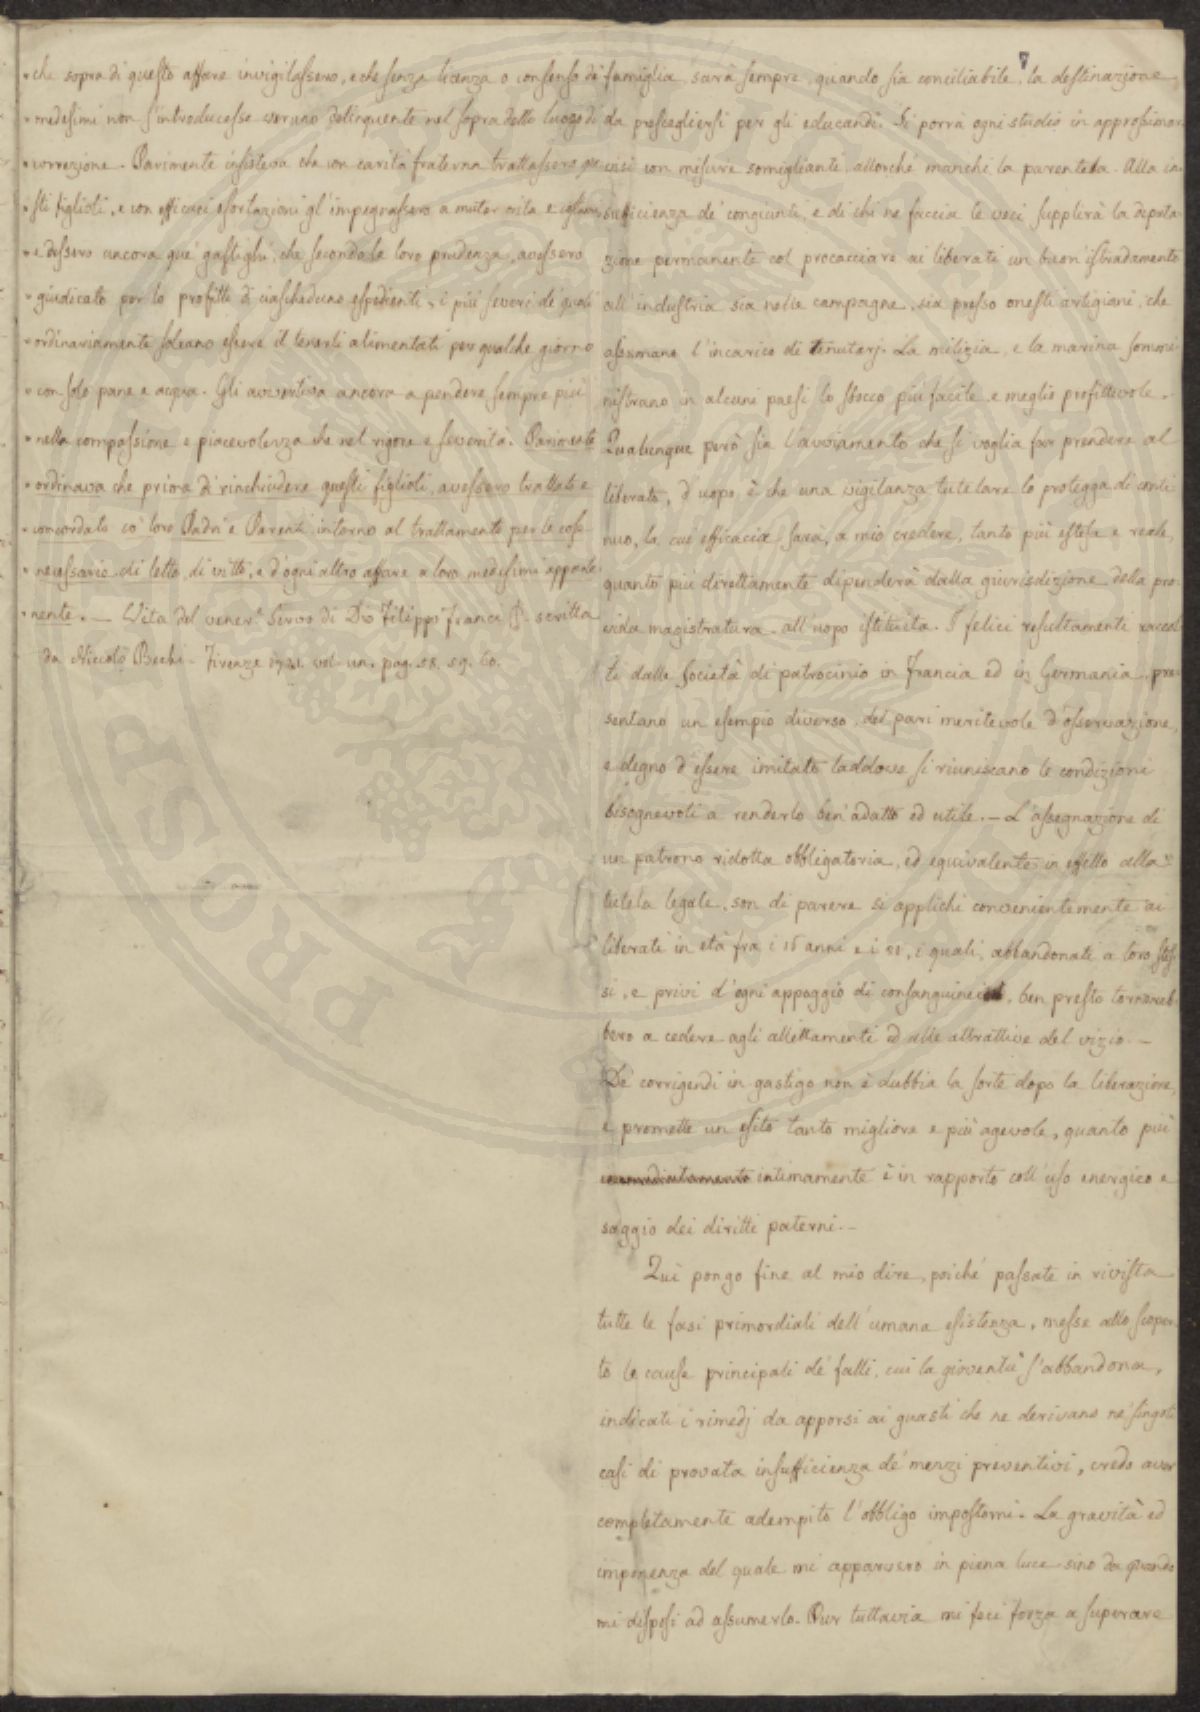 „ che sopra di questo affare invigilassero, e che senza licenza o consenso de'
„ medesimi non s'introducesse veruno delinquente nel sopradetto luogo di
„ correzione. Parimente insisteva che con carità fraterna trattassero que
„ sti figlioli, e con efficaci esortazioni gl'impegnassero a mutar vita e costumi,
„ e dessero ancora que' gastighi, che secondo la loro prudenza, avessero
„ giudicato per lo profitto di ciascheduno espedienti, i più severi de' quali
„ ordinariamente solevano essere il tenerli alimentati per qualche giorno
„ con solo pane e acqua. Gli avvertiva ancora a pendere sempre più
„ nella compassione e piacevolezza che nel rigore e severità. Parimente
„ ordinava che prima di rinchiudere questi figlioli, avessero trattato e
„ concordato co' loro Padri e Parenti intorno al trattamento per le cose
„ necessarie di letto, di vitto, e d'ogni altro affare a loro medesimi apparte
„ nente. — Vita del vener. Servo di Dio Filippo Franci scritta
da Niccolò Bechi. Firenze 1741. vol. un. pag. 58. sg. 60.
famiglia, sarà sempre, quando sia conciliabile, la destinazione
da prescegliersi per gli educandi. Si porrà ogni studio in approssimar
visi con misure somiglianti, allorché manchi la parentela. Alla in
sufficienza de' congiunti, e di chi ne faccia le veci, supplirà la deputa
zione permanente col procacciare ai liberati un buon istradamento
all'industria sia nelle campagne, sia presso onesti artigiani, che
assumano l'incarico di tenutarj. La milizia, e la marina sommi
nistrano in alcuni paesi lo sbocco più facile e meglio profittevole.
Qualunque però sia l'avviamento che si voglia far prendere al
liberato, d'uopo è che una vigilanza tutelare lo protegga di conti
nuo, la cui efficacia sarà, a mio credere, tanto più estesa e reale,
quanto più direttamente dipenderà dalla giurisdizione della prov
vida magistratura all'uopo istituita. I felici resultamenti raccol
ti dalle società di patrocinio in Francia ed in Germania, pre
sentano un esempio diverso, del pari meritevole d'osservazione,
e degno d'essere imitato laddove si riuniscano le condizioni
bisognevoli a renderlo ben'adatto ed utile. — L'assegnazione di
un patrono ridotta obbligatoria, ed equivalente in effetto alla
tutela legale, son di parere si applichi convenientemente ai
liberati in età fra i 16 anni e i 21, i quali, abbandonati a loro stes
si, e privi d'ogni appoggio di consanguinei, ben presto tornereb
bero a cedere agli allettamenti ed alle attrattive del vizio. —
De' corrigendi in gastigo non è dubbia la sorte dopo la liberazione,
e promette un esito tanto migliore e più agevole, quanto più
immediatamente intimamente è in rapporto coll'uso energico e
saggio dei diritti paterni. —
Qui pongo fine al mio dire, poiché passate in rivista
tutte le fasi primordiali dell'umana esistenza, messe allo scoper
to le cause principali de' falli, cui la gioventù s'abbandona,
indicati i rimedj da apporsi ai guasti che ne derivano ne' singoli
casi di provata insufficienza de' mezzi preventivi, credo aver
completamente adempito l'obbligo impostomi. La gravità ed
imponenza del quale mi apparvero in piena luce sino da quando
mi disposi ad assumerlo. Pur tuttavia mi feci forza a superare
PROSPERITE